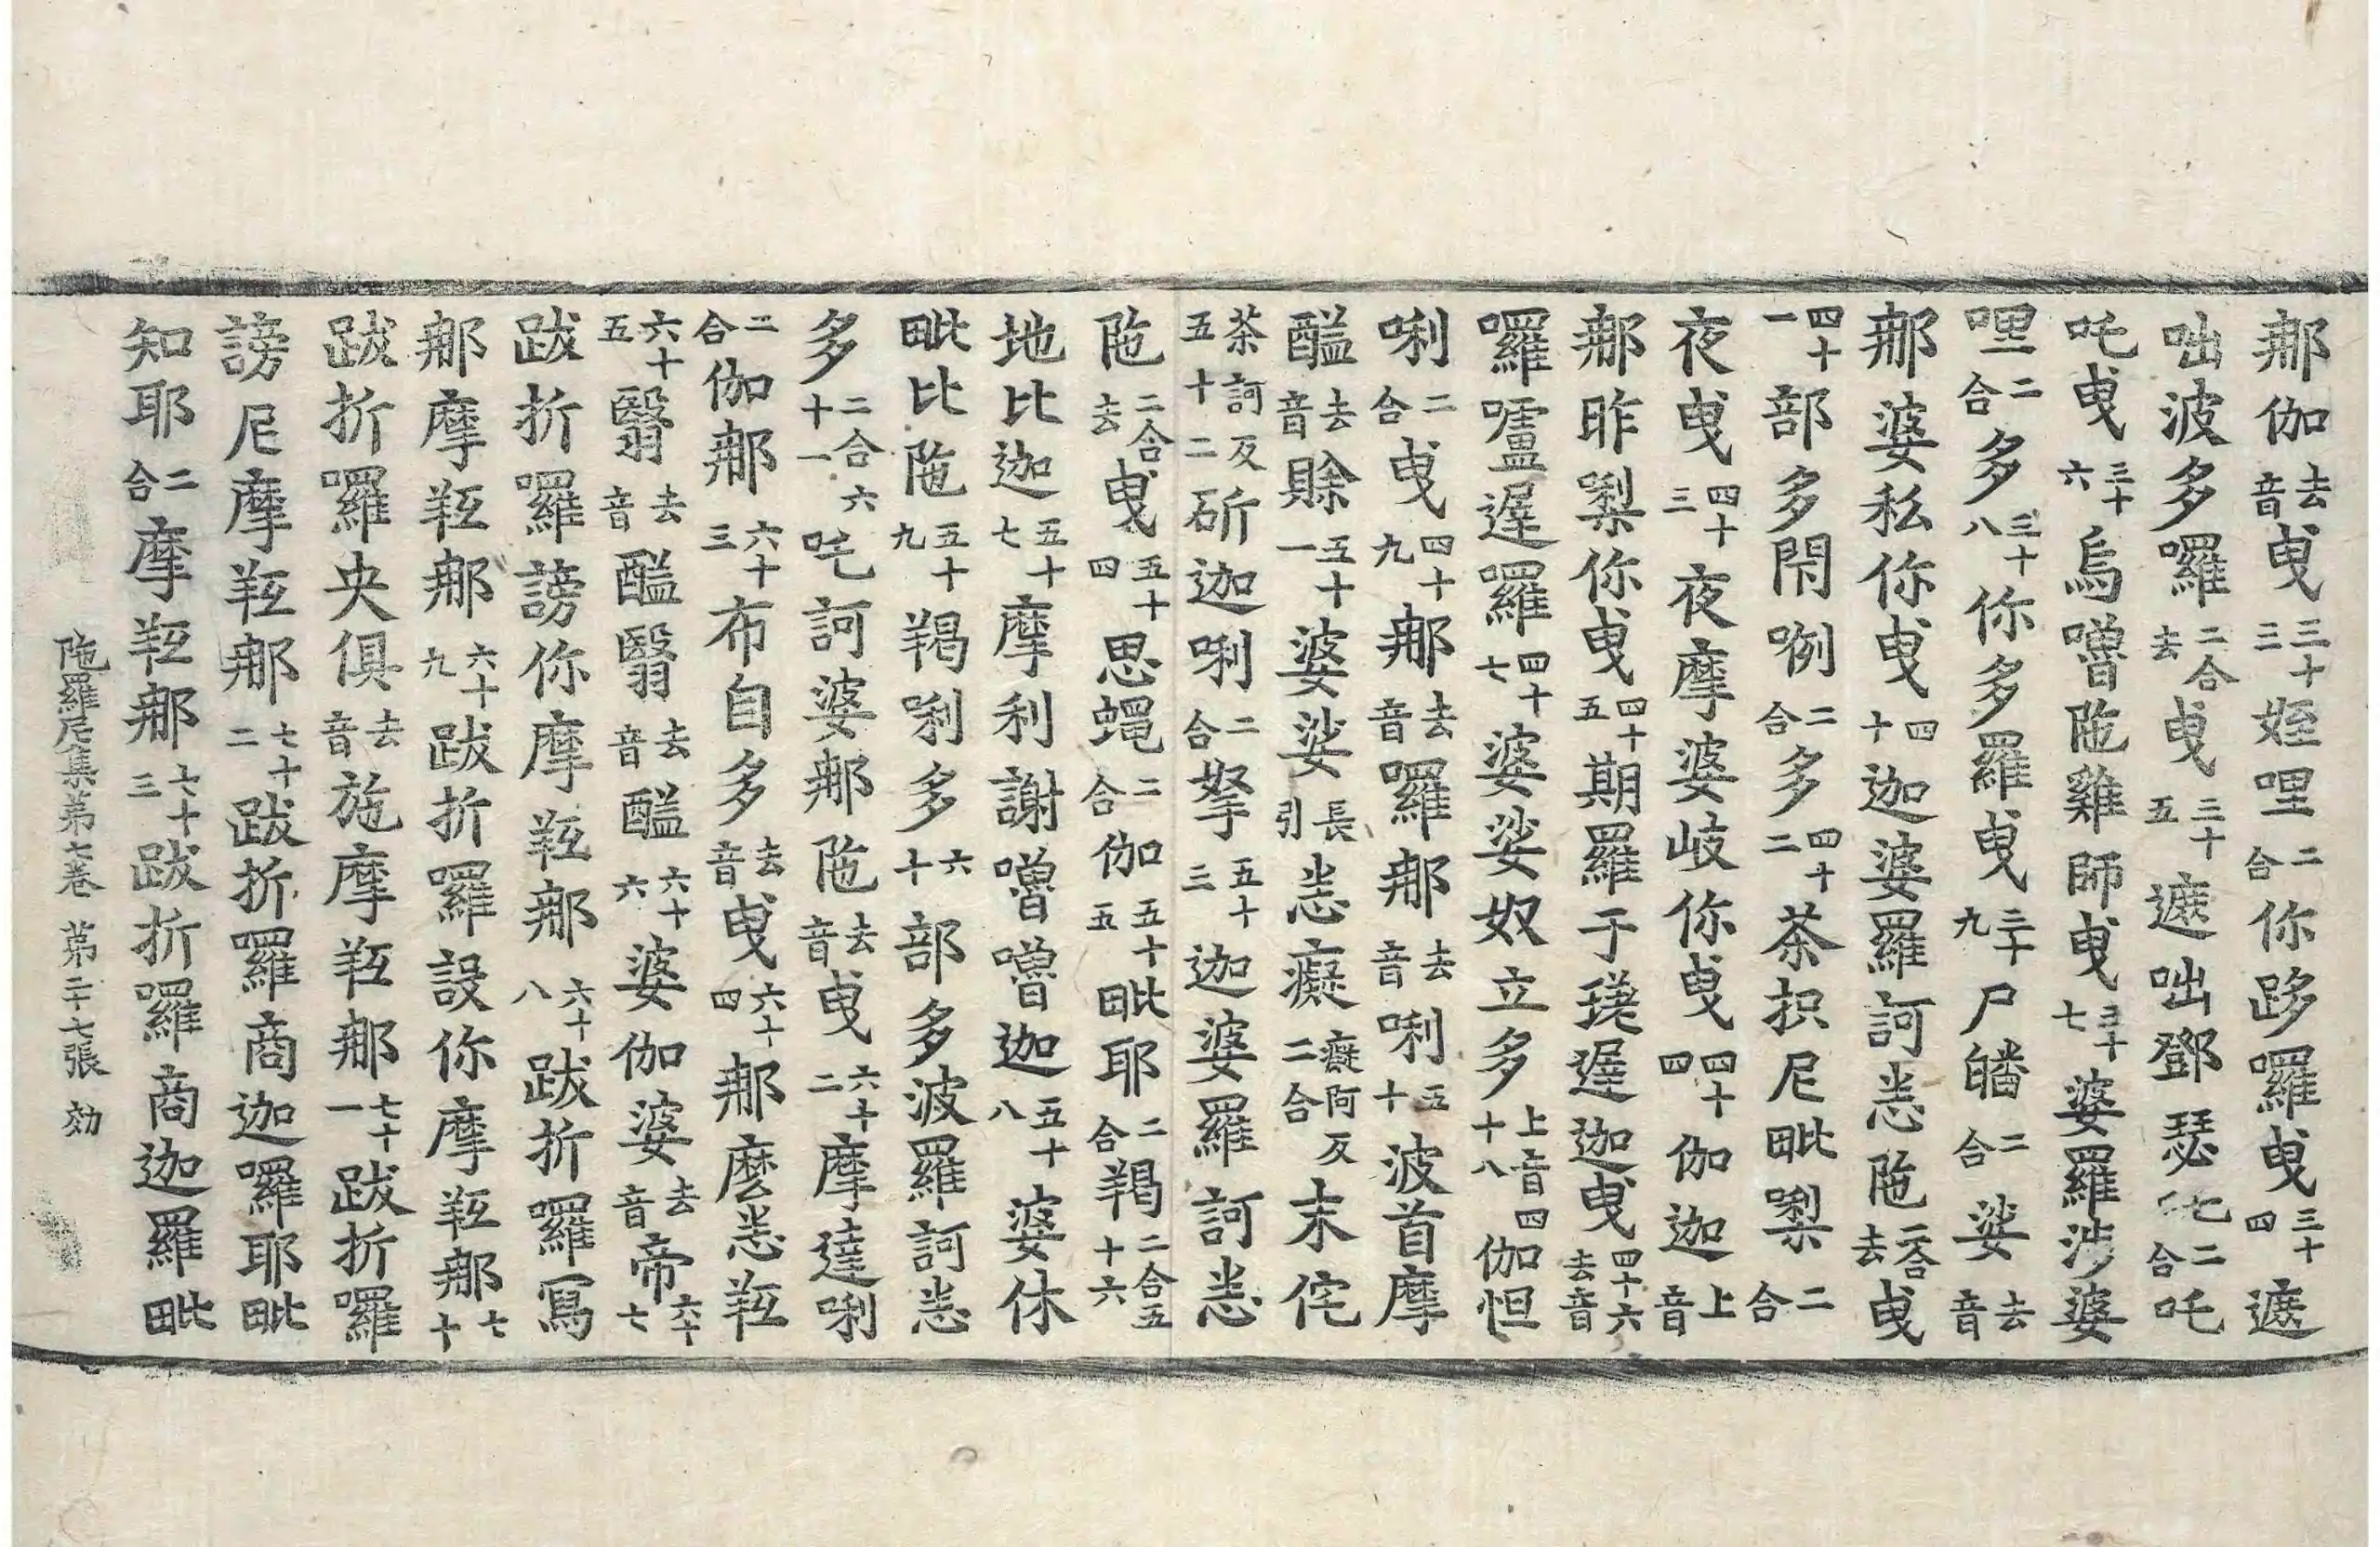 那伽去音曳三十三姪哩二合你跢囉曳三十四遮
咄波多囉二合去曳三十五遮咄鄧瑟吒二合吒
吒曳三十六烏嚕陁雞師曳三十七婆羅涉婆
哩二合多三十八你多羅曳三十九尸皤二合娑去音
那婆私你曳四十迦婆羅訶恙陁二合去曳
四十一部多閇唎二合多四十二荼抧尼毗梨二合
夜曳四十三夜摩婆岐你曳四十四伽迦上音
那昨梨你曳四十五期羅于瑳遲迦曳四十六去音
囉嚧遲羅四十七婆娑奴立多上音四十八伽怛
唎二合曳四十九那去音囉那去音唎五十波首摩
醯去音賖五十一婆娑長引恙癡癡阿反二合末侘
荼訶反五十二斫迦唎二合拏五十三迦婆羅訶恙
陁二合去曳五十四思蠅二合伽五十五毗耶二合羯二合五十六
地比迦五十七摩利謝嚕嚕迦五十八婆休
毗比陁五十九羯唎多六十部多波羅訶恙
多二合六十一吒訶婆那陁去音曳六十二摩達唎
二合伽那六十三布自多去音曳六十四那麽恙䍧
六十五毉去音醯毉去音醯六十六婆伽婆去音帝六十七
跋折囉謗你摩䍧那六十八跋折囉寫
那摩䍧那六十九跋折囉設你摩䍧那七十
跋折囉央俱去音施摩䍧那七十一跋折囉
謗尼摩䍧那七十二跋折囉商迦囉耶毗
知耶二合摩䍧那七十三跋折囉商迦羅毗
陁羅尼集第七卷 第二十七張 効